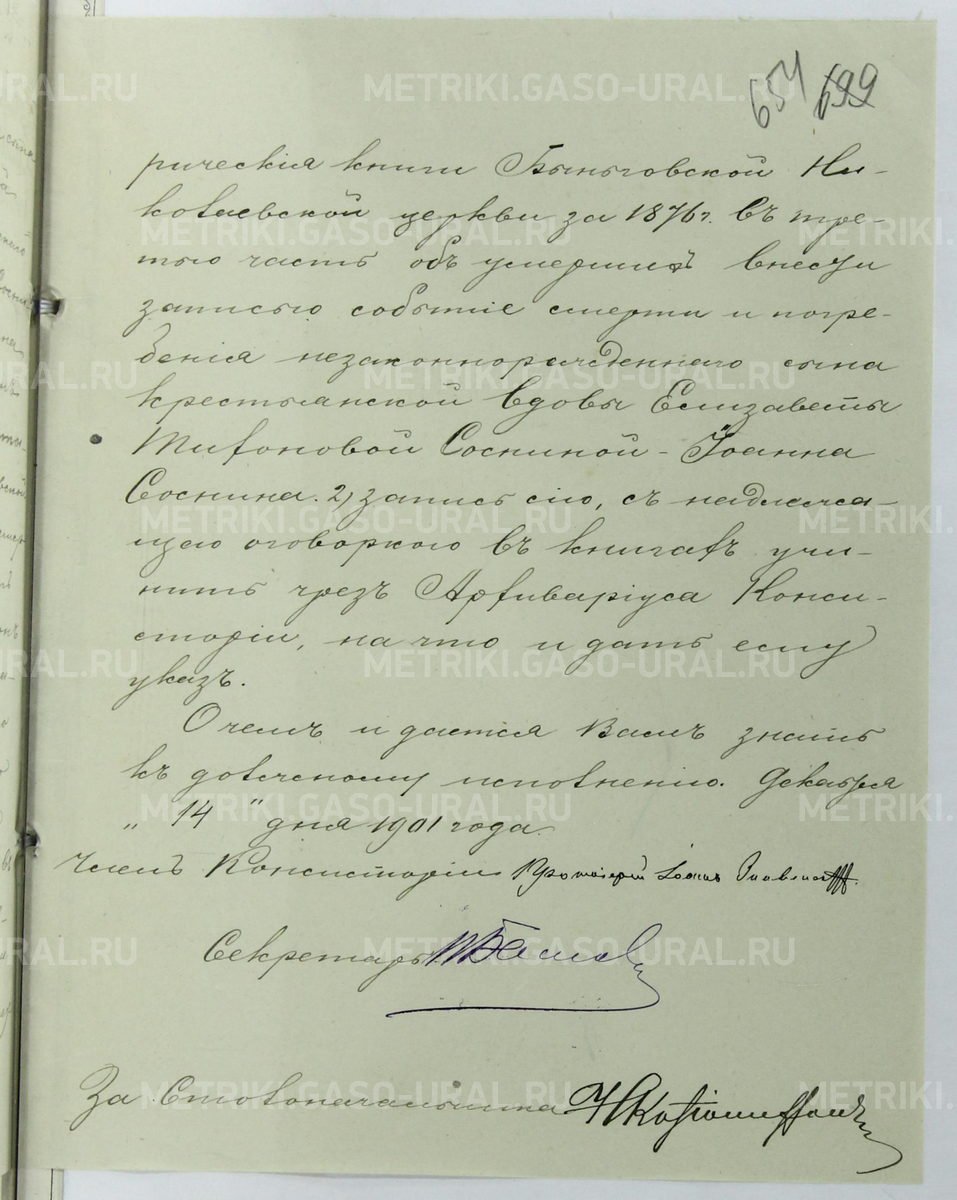 654 699
рическiя книги Быньговской Ни-
колаевской церкви за 1876 г. въ тре-
тью часть объ умершихъ внести
записью событiе смерти и погре-
бенiя незаконнорожденнаго сына
крестьянской вдовы Елизаветы
Тифоновой Сосниной - Iоанна
Соснина. 2) запись сiю, съ надлежа-
щею оговоркою въ книгахъ учи-
нить чрезъ Архиварiуса Конси-
сторiи, на что и дать ему
указъ.
О чемъ и дается Вамъ знать
къ должному исполненiю. Декабря
„ 14 " дня 1901 года.
Членъ Консисторiи Протоiерей Iоаннъ
Секретарь
За Столоначальника
METRIKI.GASO-URAL.RU